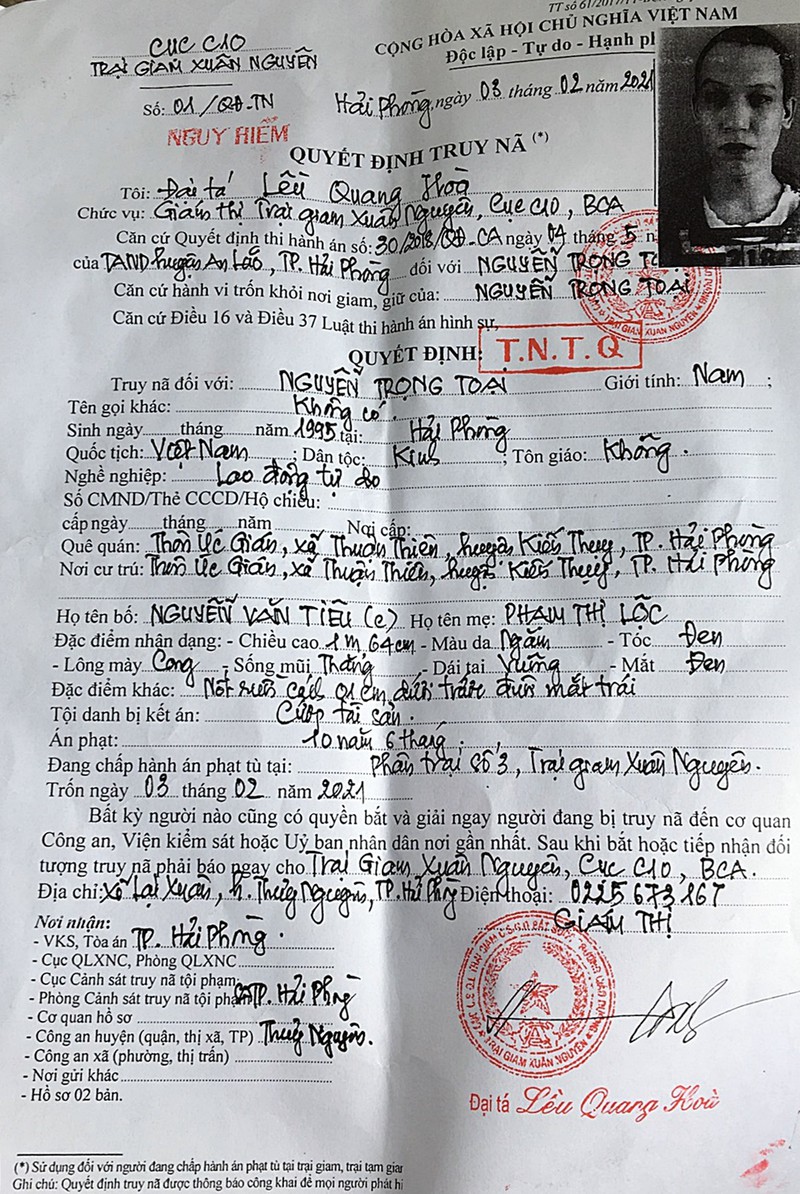 TT số 61/2017/TT-
CỤC C10
TRẠI GIAM XUÂN NGUYÊN
CỘNG HÒA XÃ HỘI CHỦ NGHĨA VIỆT NAM
Độc lập - Tự do - Hạnh ph
Số: 01/QĐ-TN
Hải Phòng, ngày 03 tháng 02 năm 2021
NGUY HIỂM
QUYẾT ĐỊNH TRUY NÃ (*)
Tôi: Đại tá Lều Quang Hoà
Chức vụ: Giám thị Trại giam Xuân Nguyên, Cục C10, BCA
Căn cứ Quyết định thi hành án số: 30/2018/QĐ-CA ngày 04 tháng 5 n
của TAND huyện An Lão, TP. Hải Phòng đối với NGUYỄN TRỌNG TOẠI
Căn cứ hành vi trốn khỏi nơi giam, giữ của: NGUYỄN TRỌNG TOẠI
Căn cứ Điều 16 và Điều 37 Luật thi hành án hình sự,
QUYẾT ĐỊNH:
T.N.T.Q
Truy nã đối với: NGUYỄN TRỌNG TOẠI Giới tính: Nam ;
Tên gọi khác: Không có.
Sinh ngày tháng năm 1995 tại: Hải Phòng
Quốc tịch: Việt Nam ; Dân tộc: Kinh ; Tôn giáo: Không.
Nghề nghiệp: Lao động tự do
Số CMND/Thẻ CCCD/Hộ chiếu:
cấp ngày tháng năm Nơi cấp:
Quê quán: Thôn Úc Gián, xã Thuận Thiên, huyện Kiến Thụy, TP. Hải Phòng
Nơi cư trú: Thôn Úc Gián, xã Thuận Thiên, huyện Kiến Thụy, TP. Hải Phòng
Họ tên bố: NGUYỄN VĂN TIÊU (c) Họ tên mẹ: PHẠM THỊ LỘC
Đặc điểm nhận dạng: - Chiều cao 1m 64cm - Màu da Ngăm - Tóc Đen
- Lông mày Cong - Sống mũi Thẳng - Dái tai Vuông - Mắt Đen
Đặc điểm khác: Nốt ruồi cách 01 cm dưới trước đuôi mắt trái
Tội danh bị kết án: Cướp tài sản.
Án phạt: 10 năm 6 tháng.
Đang chấp hành án phạt tù tại: Phân trại số 3, Trại giam Xuân Nguyên.
Trốn ngày 03 tháng 02 năm 2021
Bất kỳ người nào cũng có quyền bắt và giải ngay người đang bị truy nã đến cơ quan
Công an, Viện kiểm sát hoặc Uỷ ban nhân dân nơi gần nhất. Sau khi bắt hoặc tiếp nhận đối
tượng truy nã phải báo ngay cho Trại Giam Xuân Nguyên, Cục C10, BCA.
Địa chỉ: Xã Lại Xuân, h. Thuỷ Nguyên, TP. Hải Phòng Điện thoại: 0225 673 167
GIÁM THỊ
Nơi nhận:
- VKS, Tòa án TP. Hải Phòng.
- Cục QLXNC, Phòng QLXNC
- Cục Cảnh sát truy nã tội phạm
- Phòng Cảnh sát truy nã tội phạm CATP. Hải Phòng
- Cơ quan hồ sơ
- Công an huyện (quận, thị xã, TP) Thuỷ Nguyên.
- Công an xã (phường, thị trấn)
- Nơi gửi khác
- Hồ sơ 02 bản.
Đại tá Lều Quang Hoà
(*) Sử dụng đối với người đang chấp hành án phạt tù tại trại giam, trại tạm giam
Ghi chú: Quyết định truy nã được thông báo công khai để mọi người phát hi